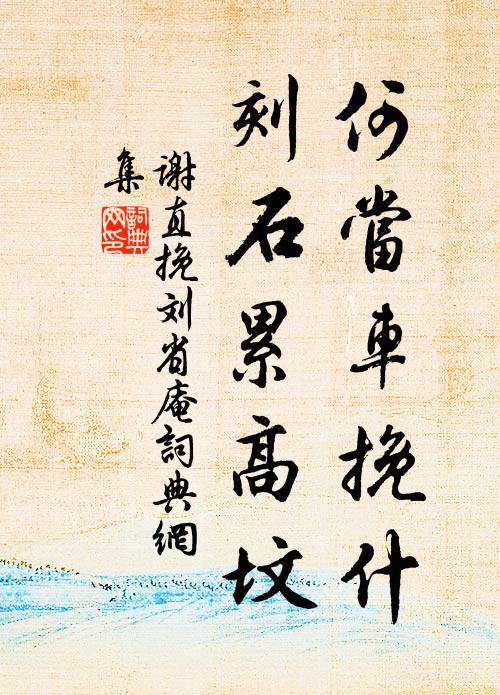 何當車挽什
刻石累高墳
謝直挽刘省庵詞典網
集
詞典
网印